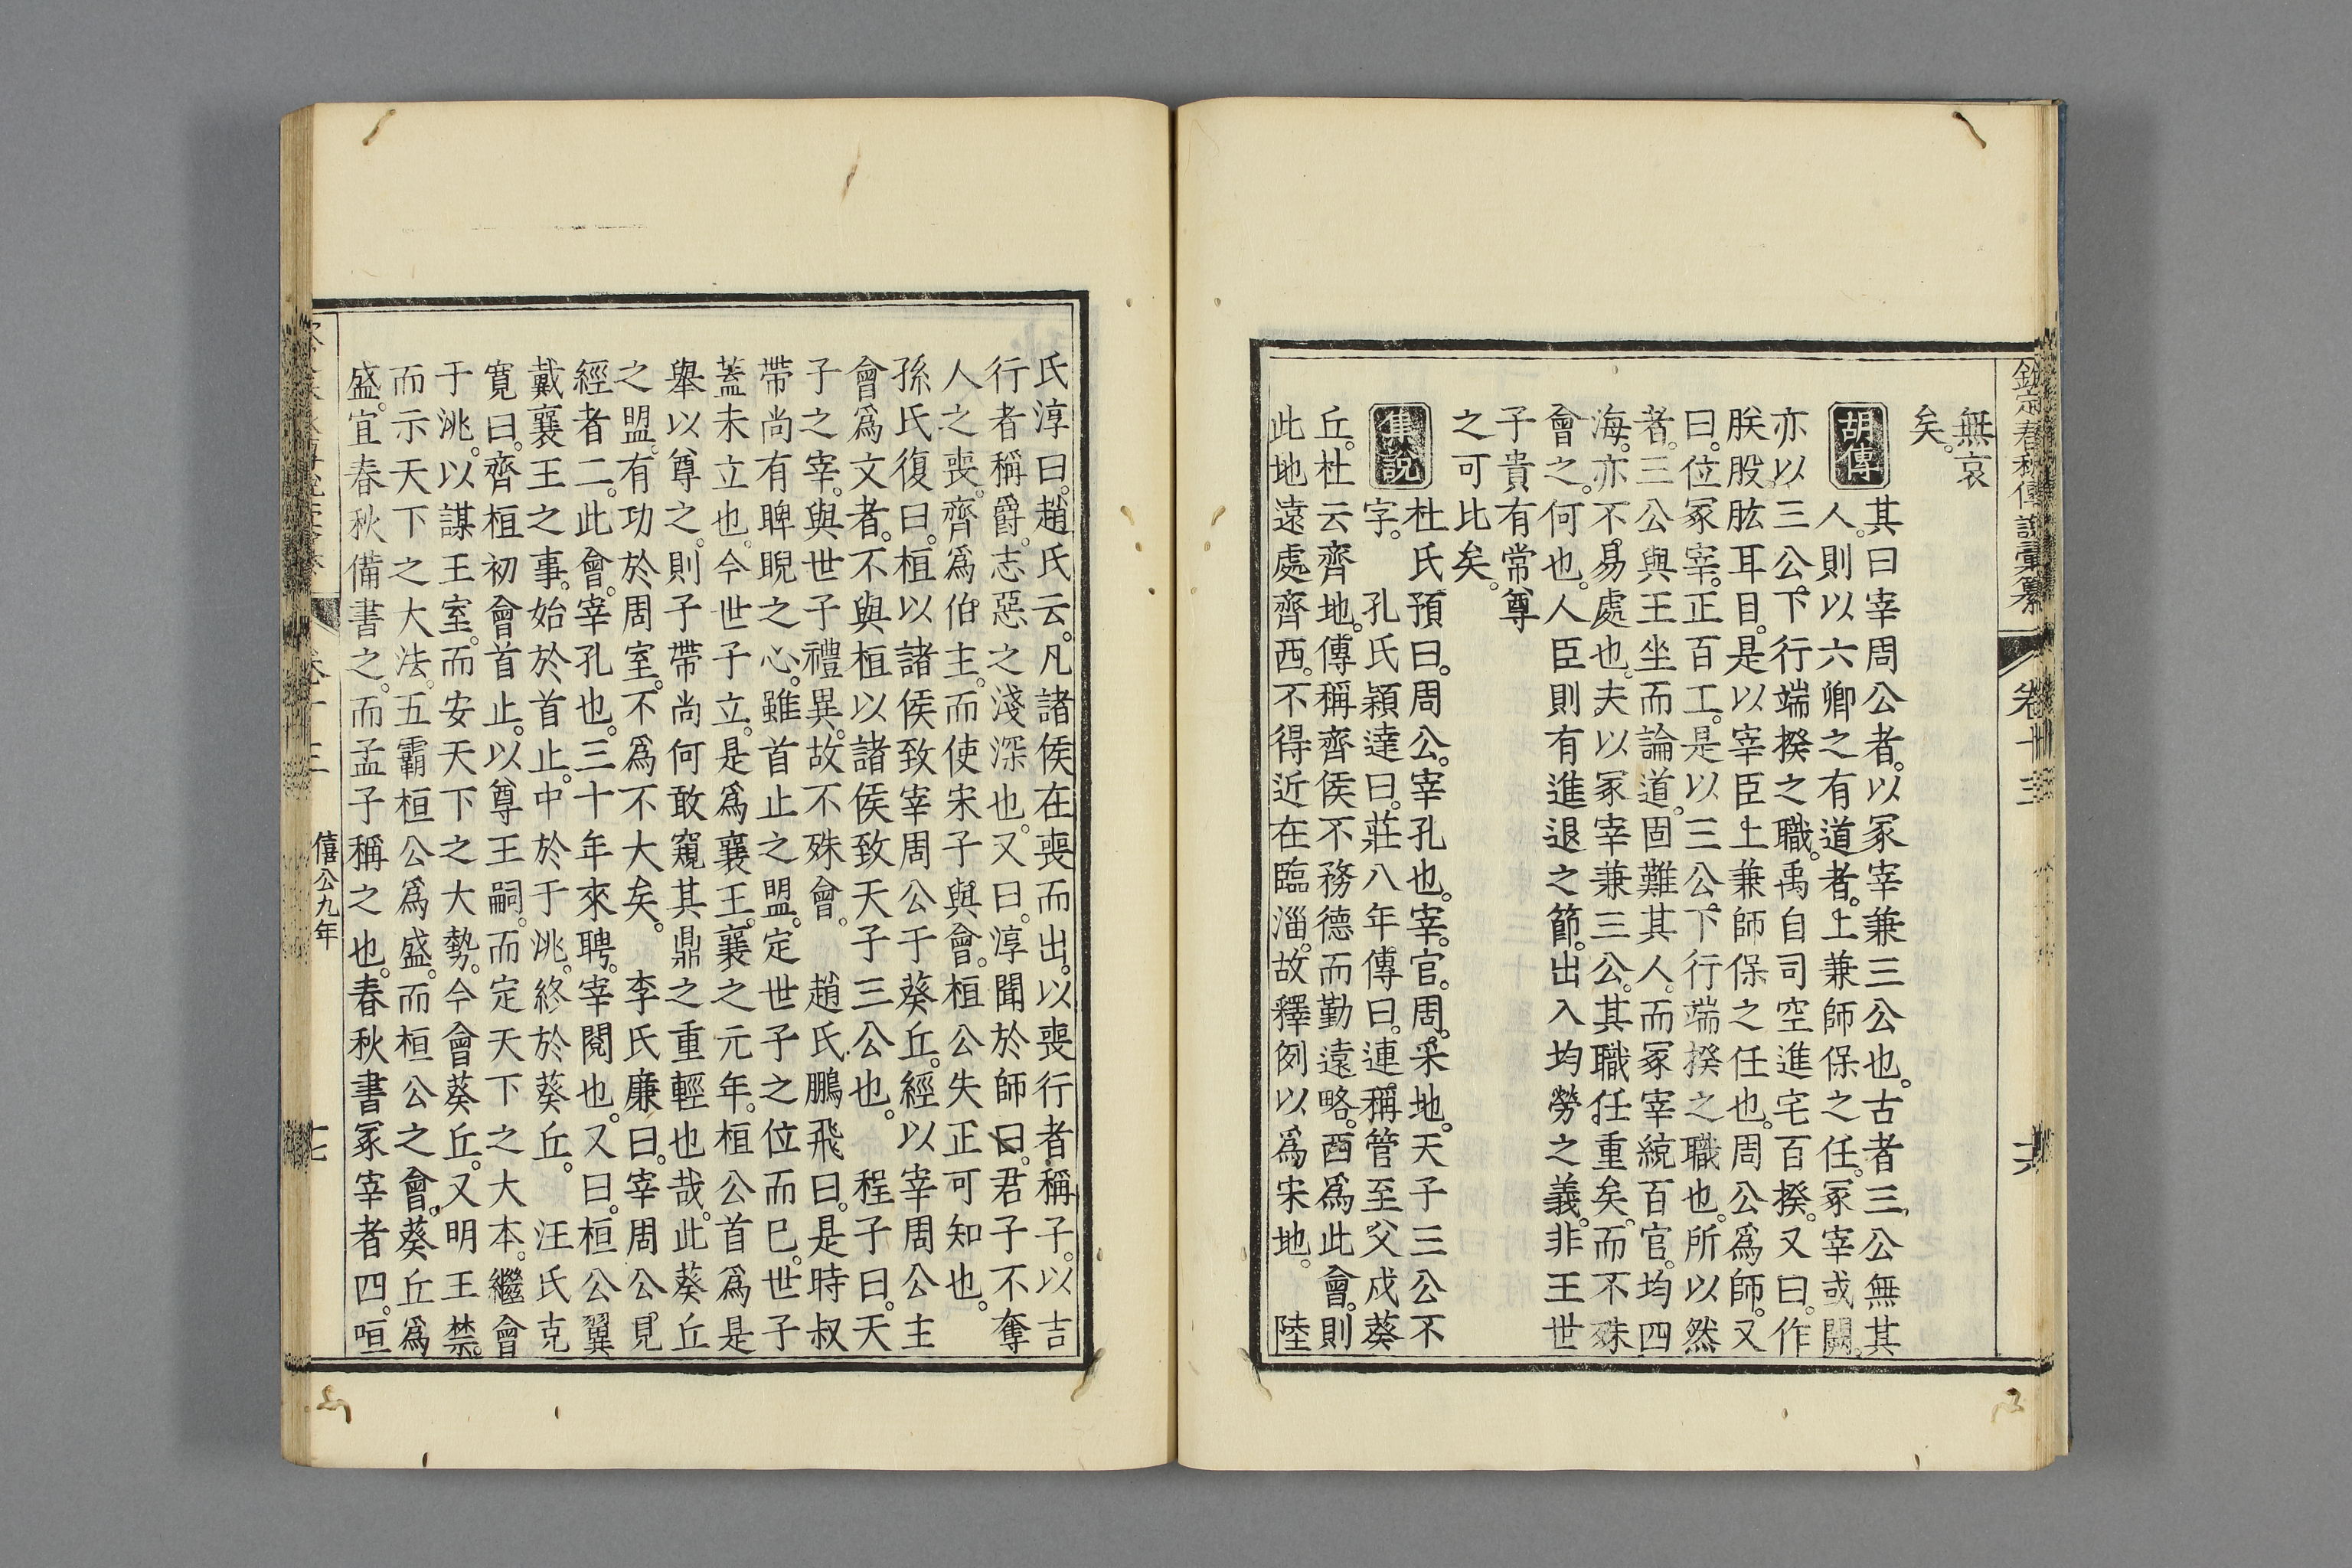 欽定春秋傳說彙纂 卷十三 六
無哀
矣。
胡傳 其曰宰周公者。以冢宰兼三公也。古者三公無其
人。則以六卿之有道者。上兼師保之任。冢宰或闕。
亦以三公。下行端揆之職。禹自司空進宅百揆。又曰。作
朕股肱耳目。是以宰臣上兼師保之任也。周公爲師。又
曰。位冢宰。正百工。是以三公。下行端揆之職也。所以然
者。三公與王坐而論道。固難其人。而冢宰統百官。均四
海。亦不易處也。夫以冢宰兼三公。其職任重矣。而不殊
會之。何也。人臣則有進退之節。出入均勞之義。非王世
子貴有常尊
之可比矣。
集說 杜氏預曰。周公。宰孔也。宰。官。周。采地。天子三公不
字。 孔氏穎達曰。莊八年。傳曰。連稱管至父戍葵
丘。杜云齊地。傳稱齊侯不務德而勤遠略。西爲此會。則
此地遠處齊西。不得近在臨淄。故釋例以爲宋地。 陸
氏淳曰。趙氏云。凡諸侯在喪而出。以喪行者稱子。以吉
行者稱爵。志惡之淺深也。又曰。淳聞於師曰。君子不奪
人之喪。齊爲伯主。而使宋子與會。桓公失正可知也。
孫氏復曰。桓以諸侯致宰周公于葵丘。經以宰周公主
會爲文者。不與桓以諸侯致天子三公也。 程子曰。天
子之宰。與世子禮異。故不殊會。 趙氏鵬飛曰。是時叔
帶尚有睥睨之心。雖首止之盟。定世子之位而巳。世子
蓋未立也。今世子立。是爲襄王。襄之元年。桓公首爲是
舉以尊之。則子帶尚何敢窺其鼎之重輕也哉。此葵丘
之盟。有功於周室。不爲不大矣。 李氏廉曰。宰周公見
經者二。此會。宰孔也。三十年來聘。宰閱也。又曰。桓公翼
戴襄王之事。始於首止。中於于洮。終於葵丘。 汪氏克
寬曰。齊桓初會首止。以尊王嗣。而定天下之大本。繼會
于洮。以謀王室。而安天下之大勢。今會葵丘。又明王禁。
而示天下之大法。五霸桓公爲盛。而桓公之會。葵丘爲
盛。宜春秋備書之。而孟子稱之也。春秋書冢宰者四。咺
卷十三 僖公九年 七